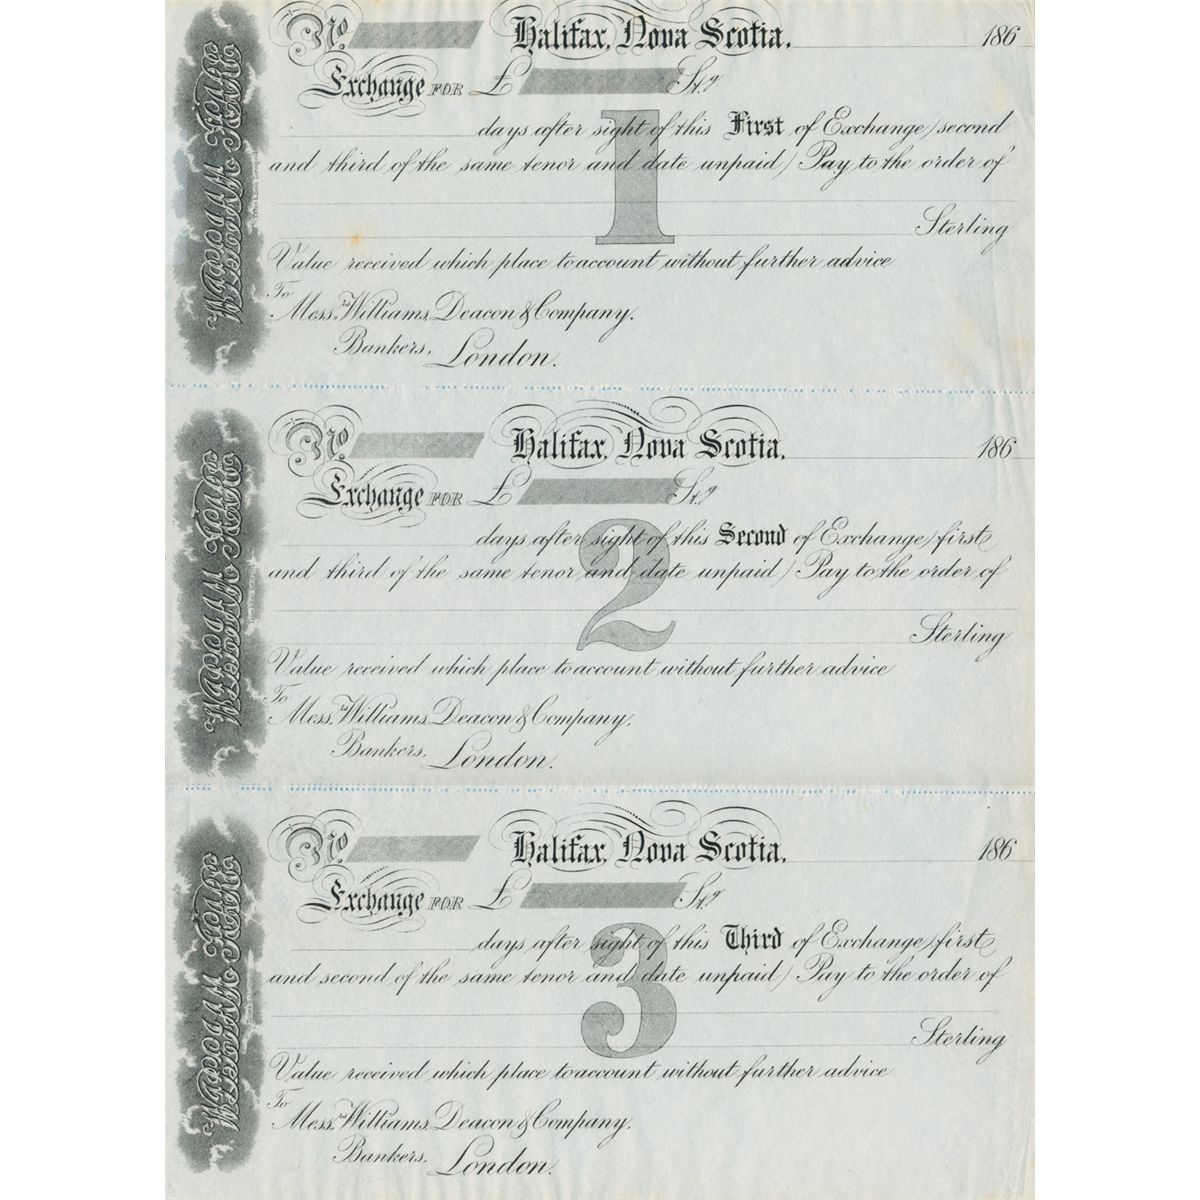 WILLIAM HARE
No. Halifax, Nova Scotia, 186
Exchange FOR £ St.g
1
days after sight of this First of Exchange (second
and third of the same tenor and date unpaid) Pay to the order of
Sterling
Value received which place to account without further advice
To
Mess.rs Williams, Deacon & Company,
Bankers, London.
WILLIAM HARE
No. Halifax, Nova Scotia, 186
Exchange FOR £ St.g
2
days after sight of this Second of Exchange (first
and third of the same tenor and date unpaid) Pay to the order of
Sterling
Value received which place to account without further advice
To
Mess.rs Williams, Deacon & Company,
Bankers, London.
WILLIAM HARE
No. Halifax, Nova Scotia, 186
Exchange FOR £ St.g
3
days after sight of this Third of Exchange (first
and second of the same tenor and date unpaid) Pay to the order of
Sterling
Value received which place to account without further advice
To
Mess.rs Williams, Deacon & Company,
Bankers, London.